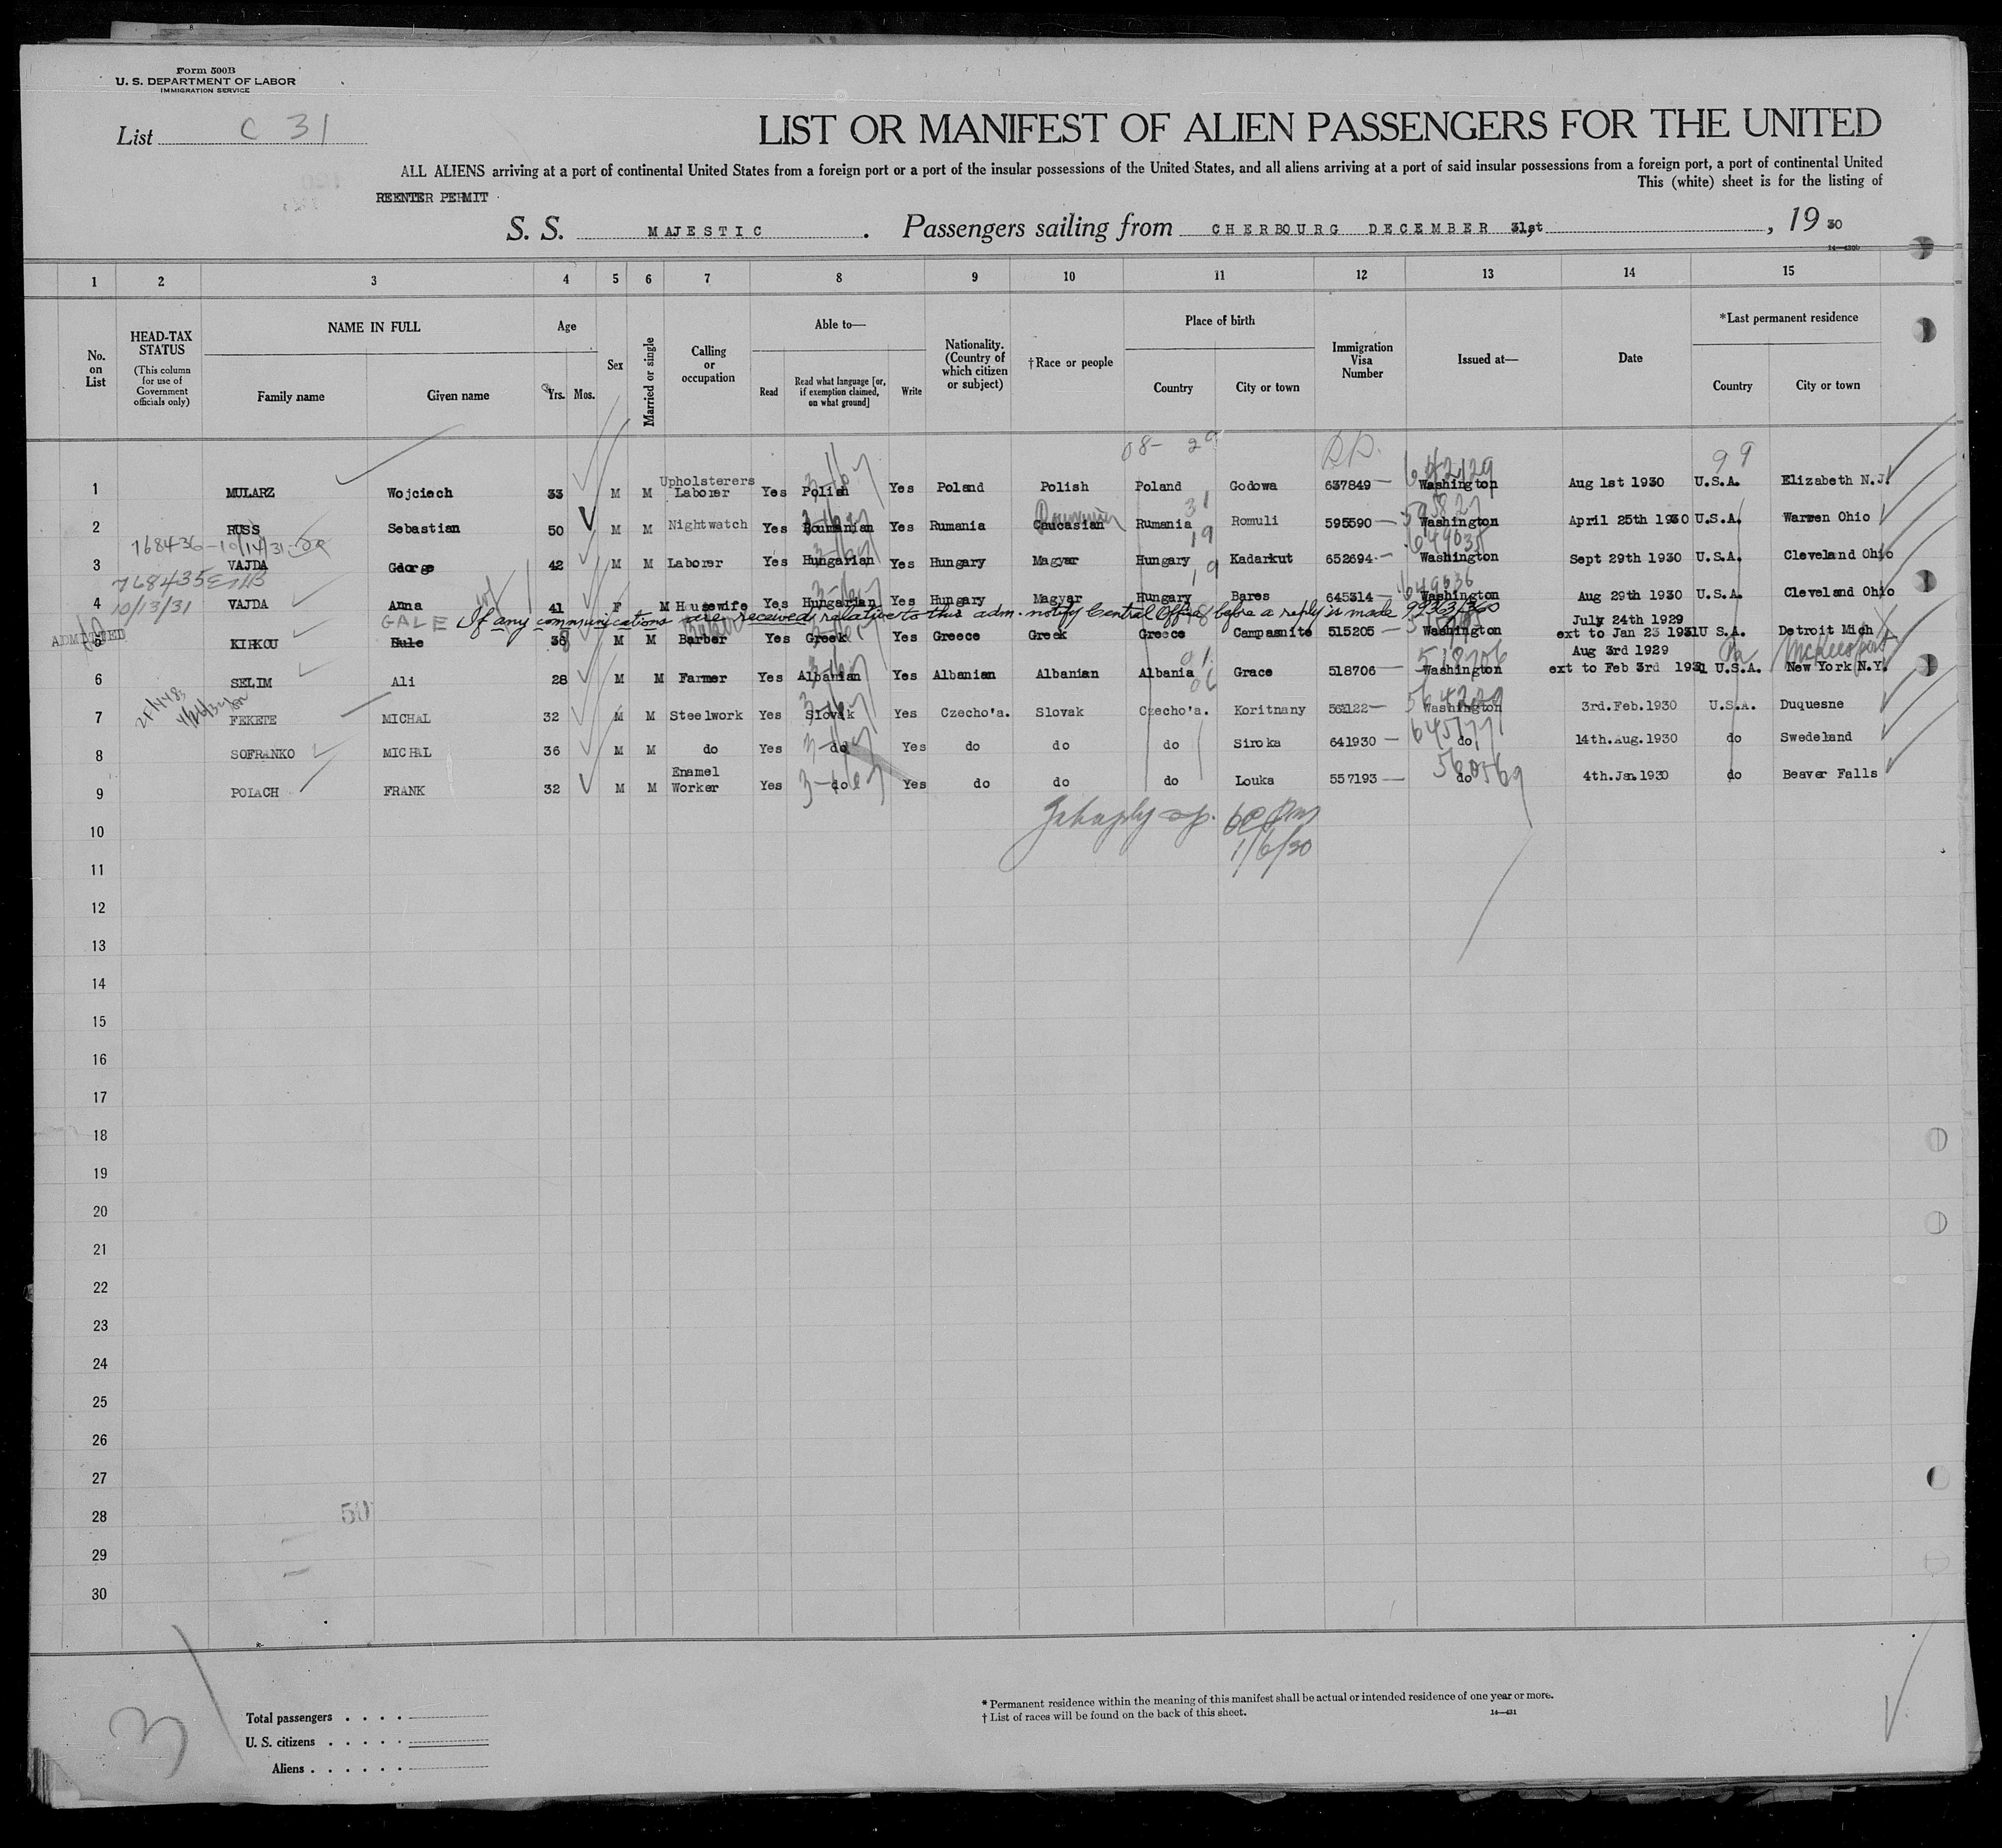 Form 500B
U. S. DEPARTMENT OF LABOR
IMMIGRATION SERVICE
List C 31
LIST OR MANIFEST OF ALIEN PASSENGERS FOR THE UNITED
ALL ALIENS arriving at a port of continental United States from a foreign port or a port of the insular possessions of the United States, and all aliens arriving at a port of said insular possessions from a foreign port, a port of continental United
This (white) sheet is for the listing of
REENTER PERMIT
S. S. MAJESTIC. Passengers sailing from CHERBOURG DECEMBER 31st, 19 30
14—430b
1 2 3 4 5 6 7 8 9 10 11 12 13 14 15
No. on List
HEAD-TAX STATUS (This column for use of Government officials only)
NAME IN FULL
Family name Given name
Age
Yrs. Mos.
Sex
Married or single
Calling or occupation
Able to—
Read
Read what language [or, if exemption claimed, on what ground]
Write
Nationality. (Country of which citizen or subject)
†Race or people
Place of birth
Country City or town
Immigration Visa Number
Issued at—
Date
*Last permanent residence
Country City or town
08- 29 99
642129
1 MULARZ Wojciech 33 M M Upholsterers Laborer Yes Polish Yes Poland Polish Poland Godowa 637849 Washington Aug 1st 1930 U.S.A. Elizabeth N.J.
31 595827
2 RUSS Sebastian 50 M M Nightwatch Yes Roumanian Yes Rumania Caucasian Rumania Romuli 595590 Washington April 25th 1930 U.S.A. Warren Ohio
768436-10/14/31 19 649635
3 VAJDA George 42 M M Laborer Yes Hungarian Yes Hungary Magyar Hungary Kadarkut 652694 Washington Sept 29th 1930 U.S.A. Cleveland Ohio
768435 19 649636
10/13/31
4 VAJDA Anna 41 F M Housewife Yes Hungarian Yes Hungary Magyar Hungary Bares 645314 Washington Aug 29th 1930 U.S.A. Cleveland Ohio
GALE If any communications are received relative to this adm. notify Central Office before a reply is made 99363/360
ADMITTED
5 KIRKOU Hule 38 M M Barber Yes Greek Yes Greece Greek Greece Campasnite 515205 Washington July 24th 1929 ext to Jan 23 1931 U S.A. Detroit Mich
01 518706 Pa McKeesport
6 SELIM Ali 28 M M Farmer Yes Albanian Yes Albanian Albanian Albania Grace 518706 Washington Aug 3rd 1929 ext to Feb 3rd 1931 U.S.A. New York N.Y.
06 564229
7 FEKETE MICHAL 32 M M Steelwork Yes Slovak Yes Czecho'a. Slovak Czecho'a. Koritnany 562122 Washington 3rd.Feb.1930 U.S.A. Duquesne
645771
8 SOFRANKO MICHAL 36 M M do Yes do Yes do do do Siroka 641930 do 14th.Aug.1930 do Swedeland
560569
9 POLACH FRANK 32 M M Enamel Worker Yes do Yes do do do Louka 557193 do 4th.Jan.1930 do Beaver Falls
10
1/6/30
11
12
13
14
15
16
17
18
19
20
21
22
23
24
25
26
27
28 50
29
30
3
Total passengers . . . .
U. S. citizens . . . . .
Aliens . . . . . .
* Permanent residence within the meaning of this manifest shall be actual or intended residence of one year or more.
† List of races will be found on the back of this sheet.
14—431